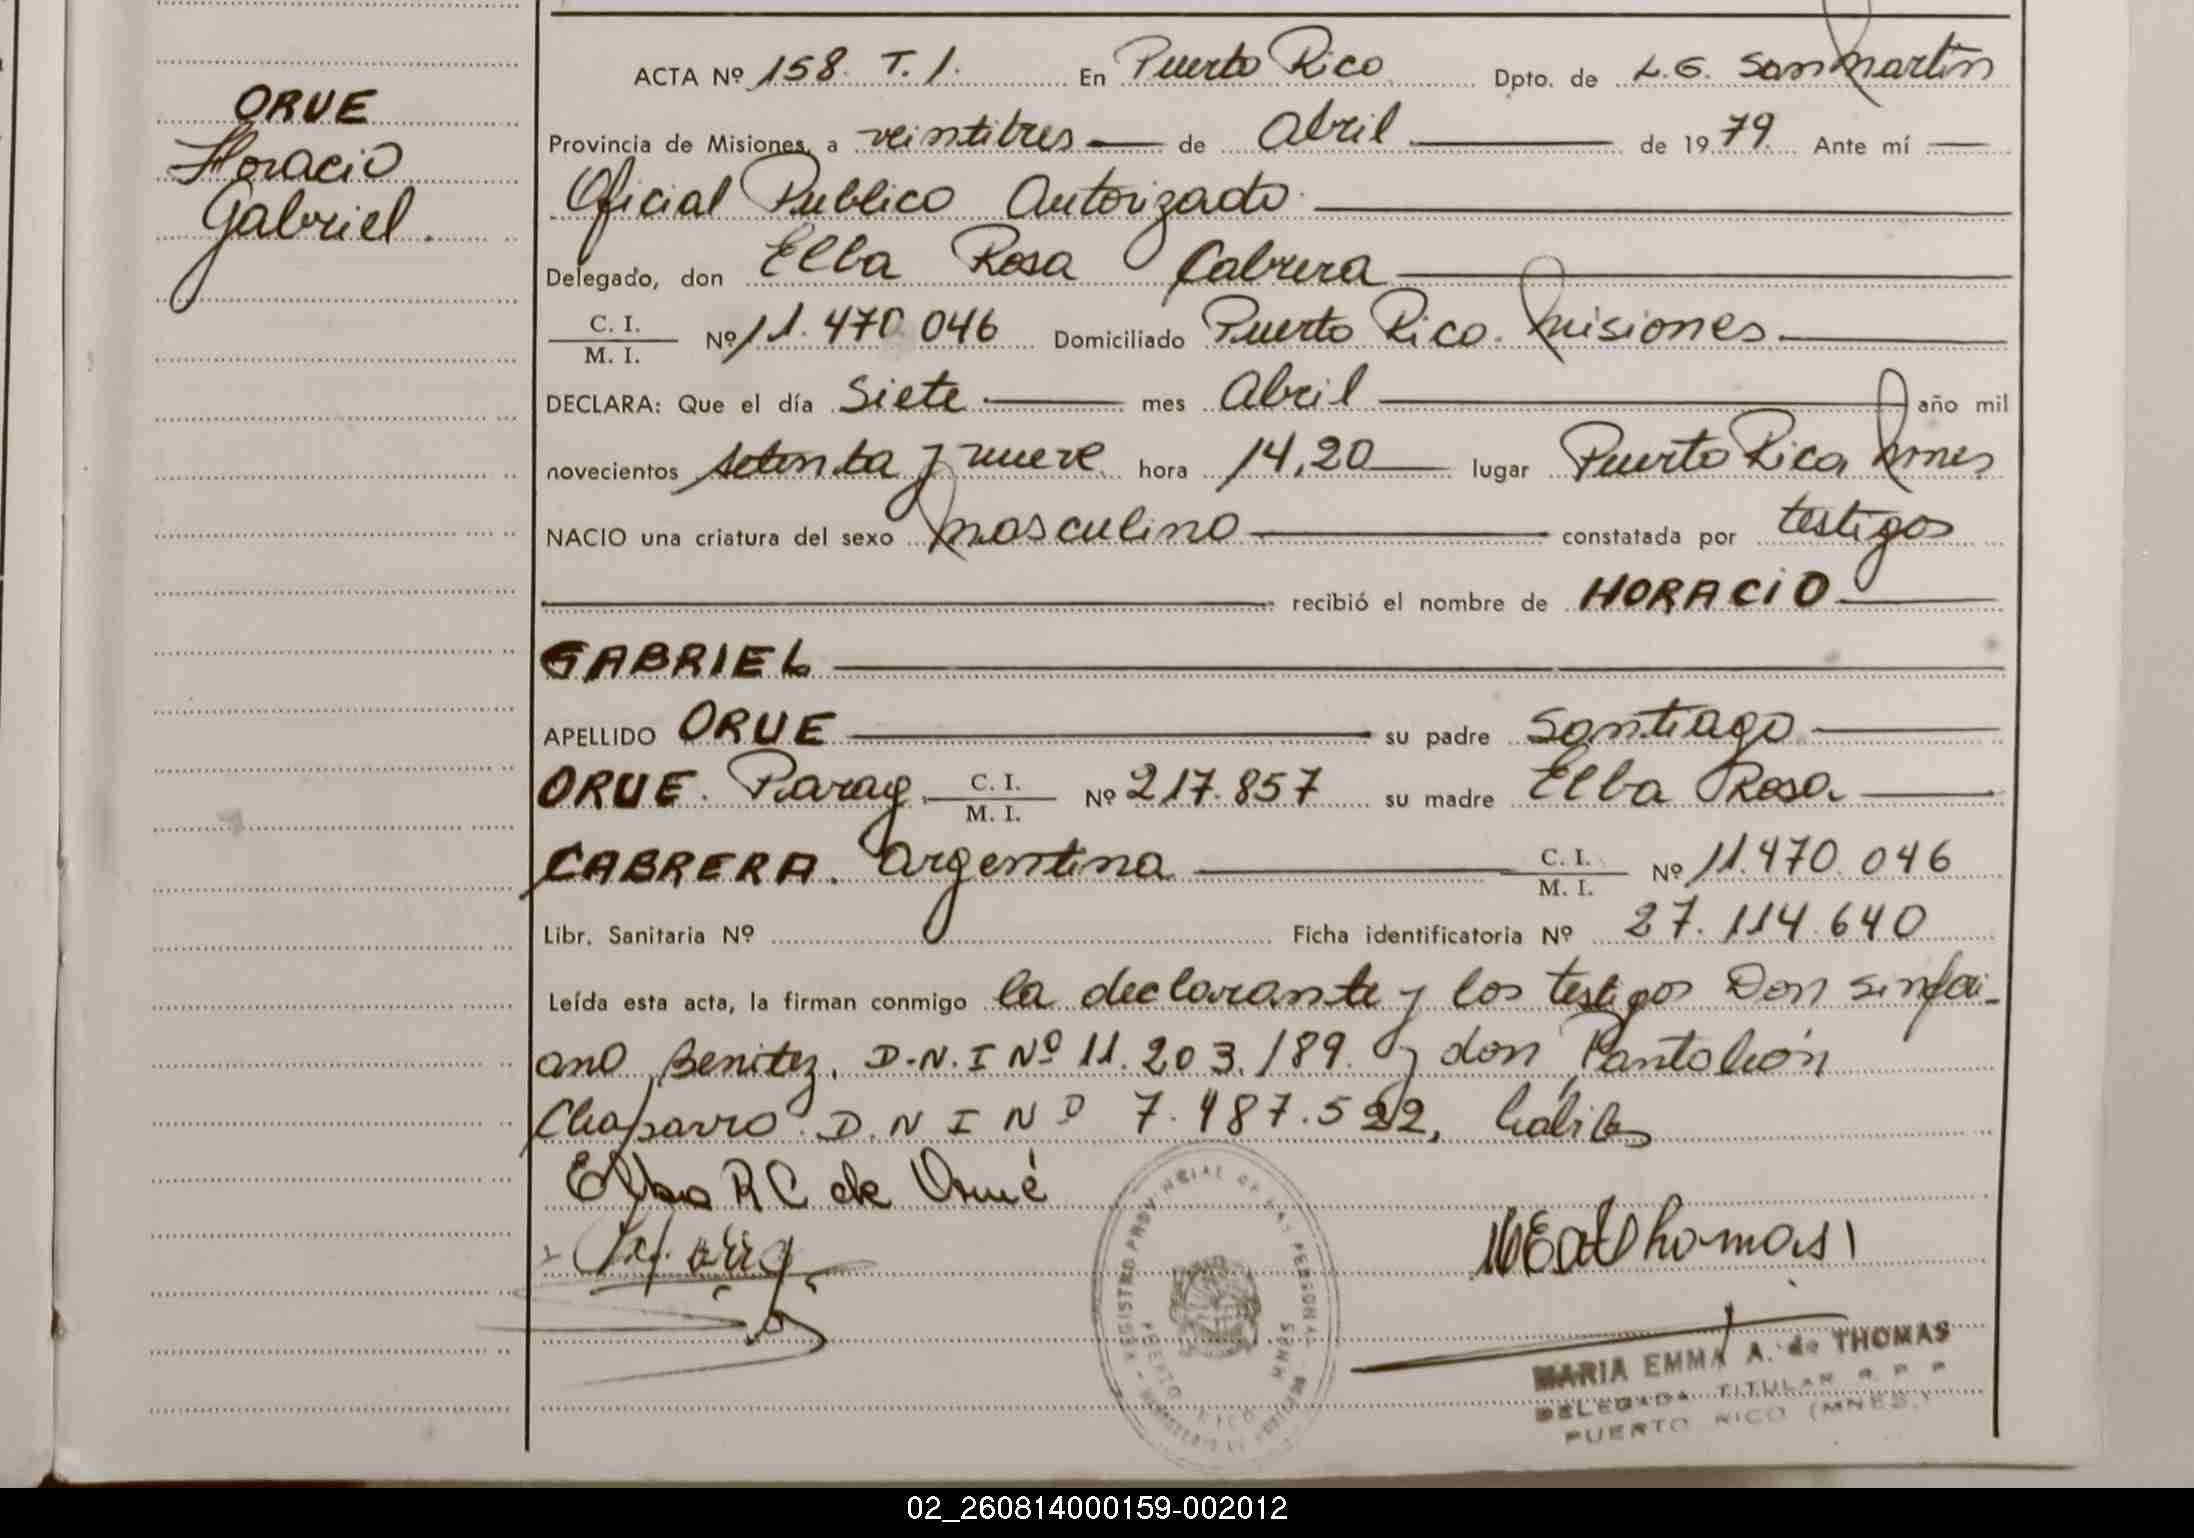 ORUE
Horacio
Gabriel.
ACTA Nº 158. T. 1. En Puerto Rico Dpto. de L.G. San Martin
Provincia de Misiones, a veintitres de Abril de 1979. Ante mí
Oficial Publico Autorizado
Delegado, don Elba Rosa Cabrera
C. I. / M. I. Nº 11.470.046 Domiciliado Puerto Rico. Misiones
DECLARA: Que el día Siete mes Abril año mil
novecientos setenta y nueve hora 14,20 lugar Puerto Rico Mnes
NACIO una criatura del sexo masculino constatada por testigos
recibió el nombre de HORACIO
GABRIEL
APELLIDO ORUE su padre Santiago
ORUE. Parag. C. I. / M. I. Nº 217.857 su madre Elba Rosa
CABRERA. Argentina C. I. / M. I. Nº 11.470.046
Libr. Sanitaria Nº Ficha identificatoria Nº 27.114.640
Leída esta acta, la firman conmigo la declarante y los testigos Don Sinfori-
ano Benitez, D.N.I Nº 11.203.189. y don Pantaleón
Chaparro. D.N I Nº 7.487.522, habiles
Elba R C de Orué
MEAdThomas
REGISTRO PROVINCIAL DE LAS PERSONAS
PUERTO RICO MNES
MARIA EMMA A. de THOMAS
DELEGADA TITULAR R. P. P.
PUERTO RICO (MNES.)
02_260814000159-002012